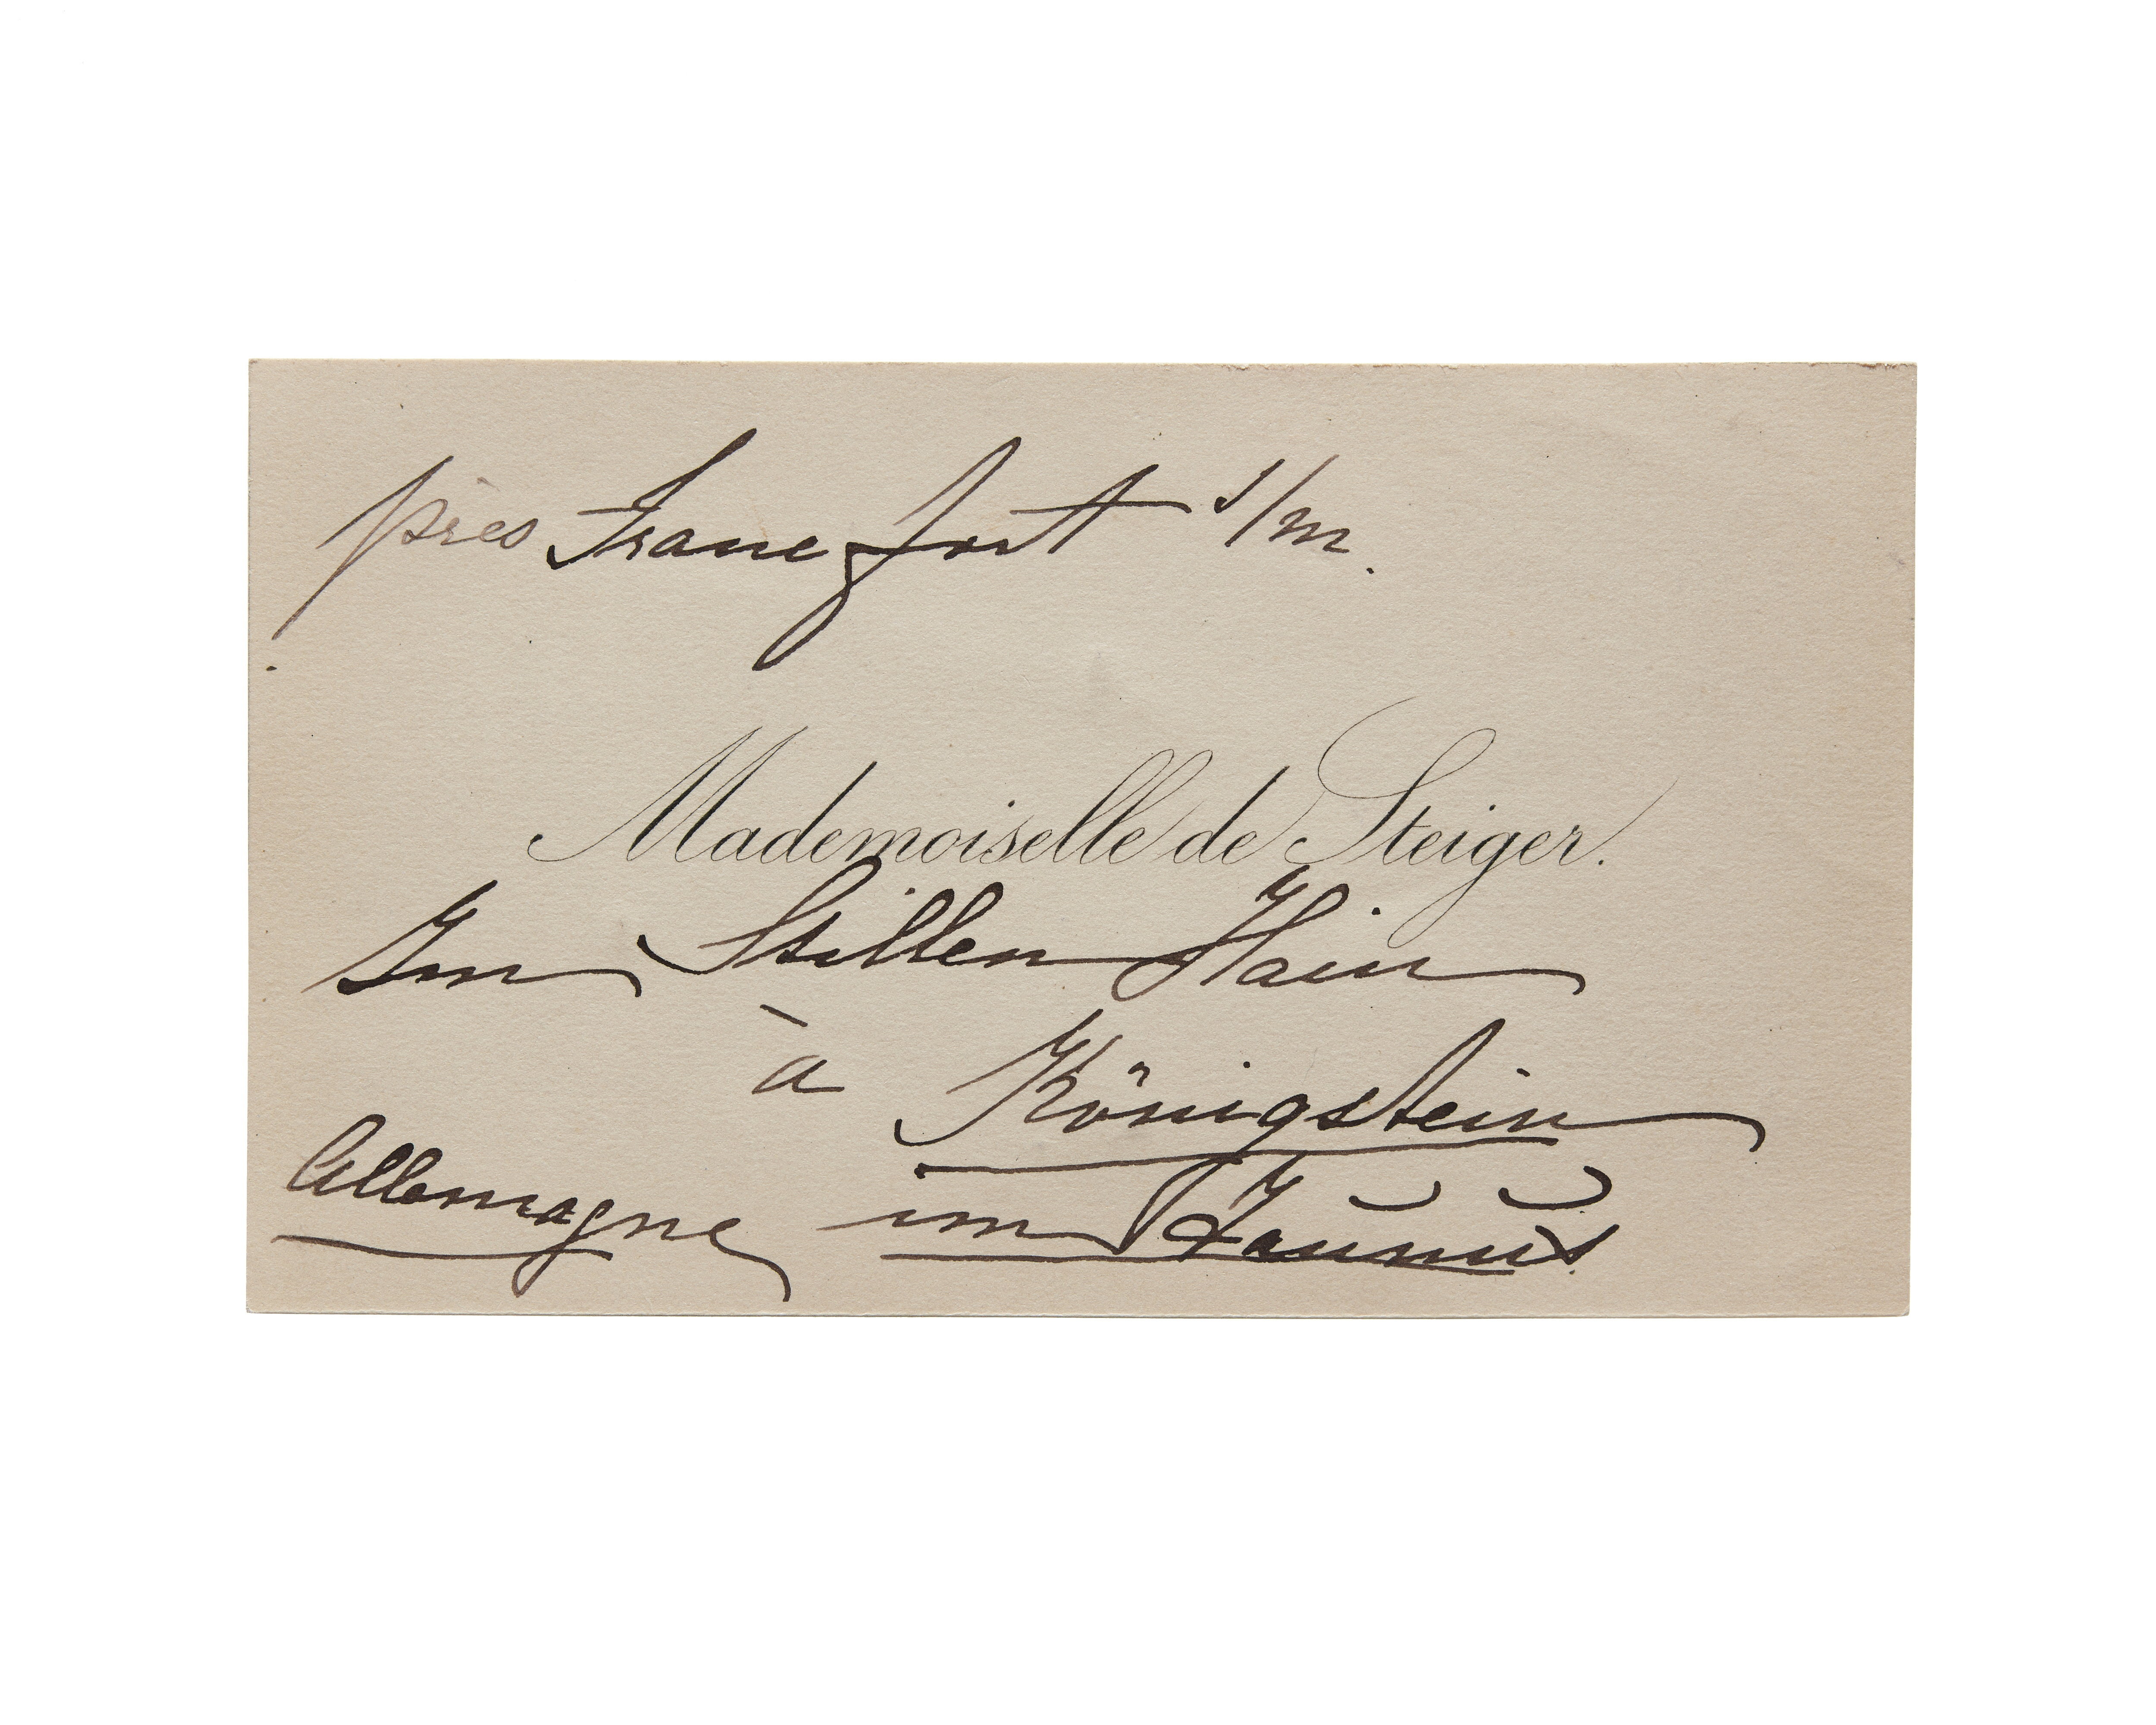 près Francfort s/m.
Mademoiselle de Steiger.
Im Stillen Hain
à Königstein
Allemagne im Taunus.